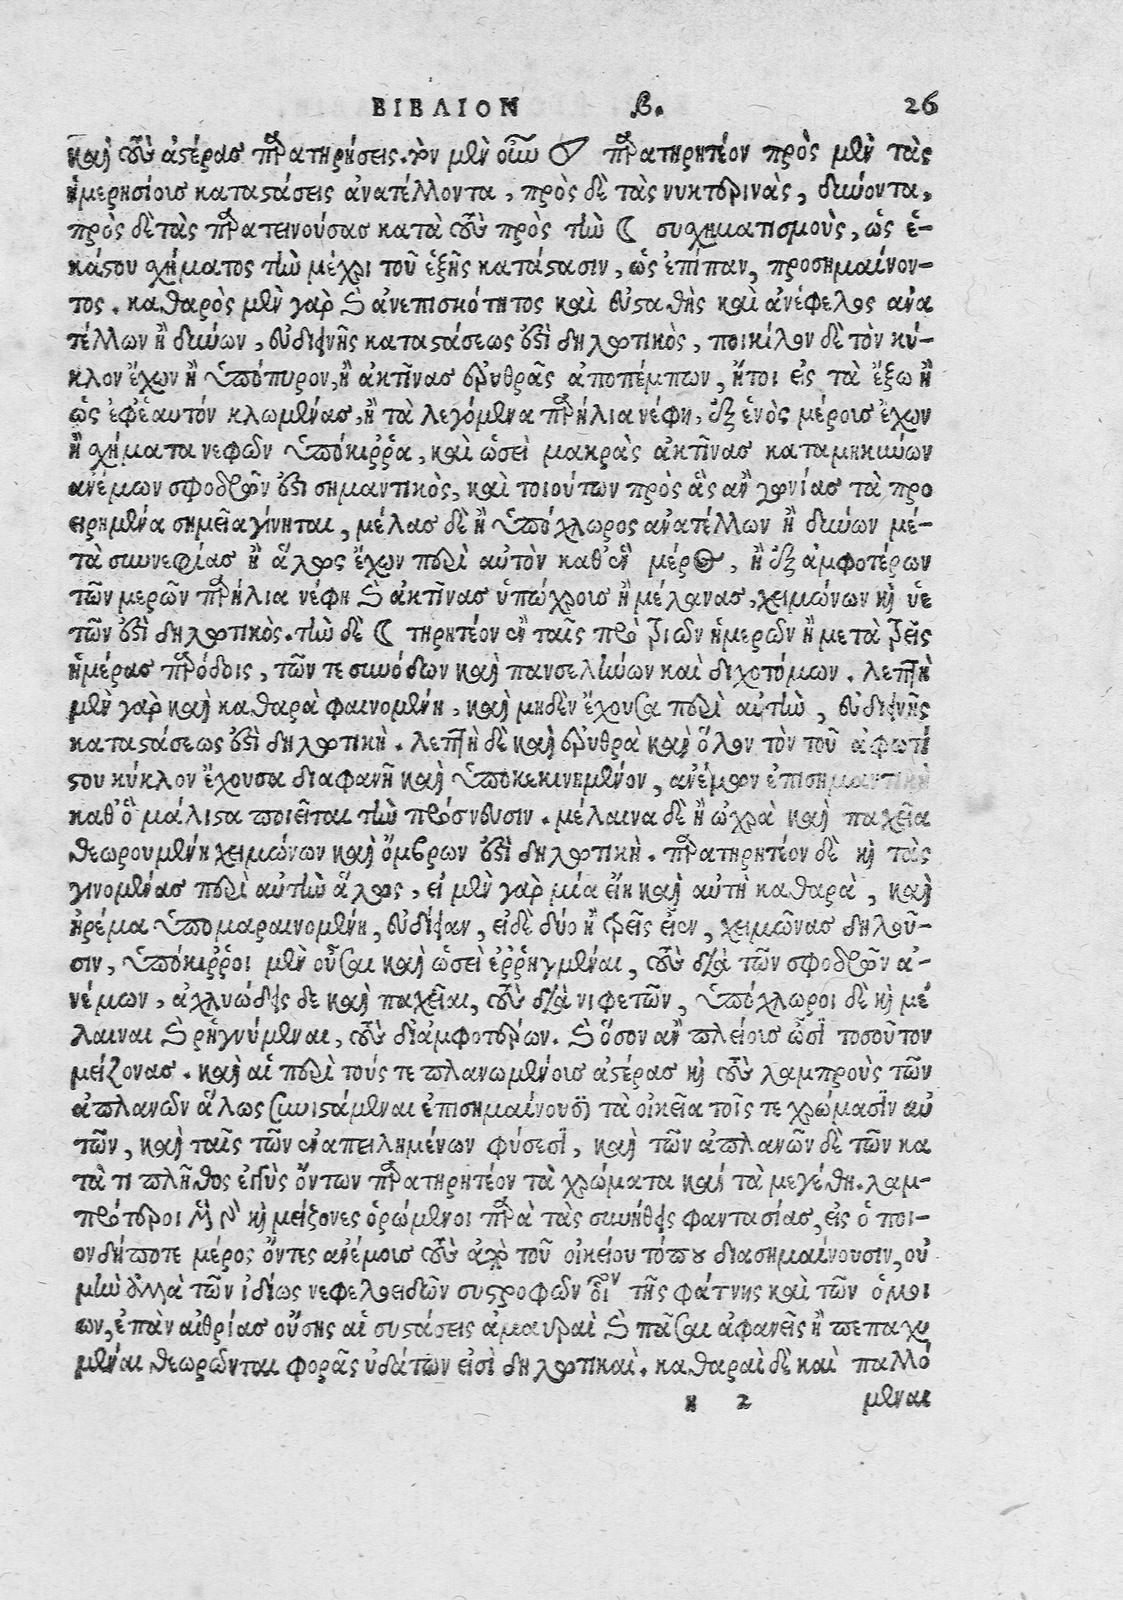 ΒΙΒΛΙΟΝ β. 26
καὶ τοὺς ἀστέρας παρατηρήσεις. τὸν μὲν οὖν ☉ παρατηρητέον πρὸς μὲν τὰς
ἡμερησίους καταστάσεις ἀνατέλλοντα, πρὸς δὲ τὰς νυκτερινὰς, δύνοντα,
πρὸς δὲ τὰς παρατεινούσας κατὰ τοὺς πρὸς τὴν ☾ συσχηματισμοὺς, ὡς ἑ-
κάστου σχήματος τὴν μέχρι τοῦ ἑξῆς κατάστασιν, ὡς ἐπίπαν, προσημαίνον-
τος. καθαρὸς μὲν γὰρ καὶ ἀνεπισκότητος καὶ εὐσταθὴς καὶ ἀνέφελος ἀνα
τέλλων ἢ δύνων, εὐδιεινῆς καταστάσεως ἐστὶ δηλωτικὸς, ποικίλον δὲ τὸν κύ-
κλον ἔχων ἢ ὑπόπυρον, ἢ ἀκτῖνας ἐρυθρᾶς ἀποπέμπων, ἤτοι εἰς τὰ ἔξω ἢ
ὡς ἐφ' ἑαυτόν κλωμένας, ἢ τὰ λεγόμενα παρήλια νέφη, ἐξ ἑνὸς μέρους ἔχων
ἢ σχήματα νεφῶν ὑπόκιρρα, καὶ ὡσεὶ μακρὰς ἀκτῖνας καταμηκύνων
ἀνέμων σφοδρῶν ἐστὶ σημαντικὸς, καὶ τοιούτων πρὸς ἃς ἂν γωνίας τὰ προ
ειρημένα σημεῖα γίνηται, μέλας δὲ ἢ ὑπόχλωρος ἀνατέλλων ἢ δύνων με-
τὰ συννεφίας ἢ ἅλως ἔχων περὶ αὐτὸν καθ' ἓν μέρος, ἢ ἐξ ἀμφοτέρων
τῶν μερῶν παρήλια νέφη καὶ ἀκτῖνας ὑπώχρους ἢ μέλανας, χειμώνων καὶ ὑε
τῶν ἐστὶ δηλωτικὸς. τὴν δὲ ☾ τηρητέον ἐν ταῖς πρὸ τριῶν ἡμερῶν ἢ μετὰ τρεῖς
ἡμέρας παρόδοις, τῶν τε συνόδων καὶ πανσελήνων καὶ διχοτόμων. λεπτὴ
μὲν γὰρ καὶ καθαρὰ φαινομένη, καὶ μηδὲν ἔχουσα περὶ αὐτὴν, εὐδιεινῆς
καταστάσεως ἐστὶ δηλωτικὴ. λεπτὴ δὲ καὶ ἐρυθρὰ καὶ ὅλον τὸν τοῦ ἀφωτί
στου κύκλον ἔχουσα διαφανῆ καὶ ὑποκεκινημένον, ἀνέμων ἐπισημαντικὴ
καθ' ὃ μάλιστα ποιεῖται τὴν πρόσνευσιν. μέλαινα δὲ ἢ ὠχρὰ καὶ παχεῖα
θεωρουμένη χειμώνων καὶ ὄμβρων ἐστὶ δηλωτικὴ. παρατηρητέον δὲ καὶ τὰς
γινομένας περὶ αὐτὴν ἅλως, εἰ μὲν γὰρ μία εἴη καὶ αὐτὴ καθαρὰ, καὶ
ἠρέμα ὑπομαραινομένη, εὐδίαν, εἰ δὲ δύο ἢ τρεῖς εἶεν, χειμῶνας δηλοῦ-
σιν, ὑπόκιρροι μὲν οὖσαι καὶ ὡσεὶ ἐρρηγμέναι, τοὺς διὰ τῶν σφοδρῶν ἀ-
νέμων, ἀχλυώδεις δε καὶ παχεῖαι, τοὺς διὰ νιφετῶν, ὑπόχλωροι δὲ καὶ μέ
λαιναι καὶ ῥηγνύμεναι, τοὺς δι' ἀμφοτέρων. καὶ ὅσον ἂν πλείους ὦσϊ τοσοῦτον
μείζονας. καὶ αἱ περὶ τούς τε πλανωμένους ἀστέρας καὶ τοὺς λαμπροὺς τῶν
ἀπλανῶν ἅλως συνιστάμεναι ἐπισημαίνουσϊ τὰ οἰκεῖα τοῖς τε χρώμασϊν αὐ
τῶν, καὶ ταῖς τῶν ἐναπειλημένων φύσεσϊ, καὶ τῶν ἀπλανῶν δὲ τῶν κα
τὰ τι πλῆθος ἐγγὺς ὄντων παρατηρητέον τὰ χρώματα καὶ τὰ μεγέθη. λαμ-
πρότεροι μὲν γὰρ καὶ μείζονες ὁρώμενοι παρὰ τὰς συνήθεις φαντασίας, εἰς ὁποι-
ονδήποτε μέρος ὄντες ἀνέμους τοὺς ἀπὸ τοῦ οἰκείου τόπου διασημαίνουσιν, οὐ
μὴν ἀλλὰ τῶν ἰδίως νεφελοειδῶν συστροφῶν οἷον τῆς φάτνης καὶ τῶν ὁμοί
ων, ἐπὰν αἰθρίας οὔσης αἱ συστάσεις ἀμαυραὶ καὶ πᾶσαι ἀφανεῖς ἢ πεπαχυ
μέναι θεωρῶνται φορᾶς ὑδάτων εἰσὶ δηλωτικαὶ. καθαραὶ δὲ καὶ παλλό
η 2 μεναι